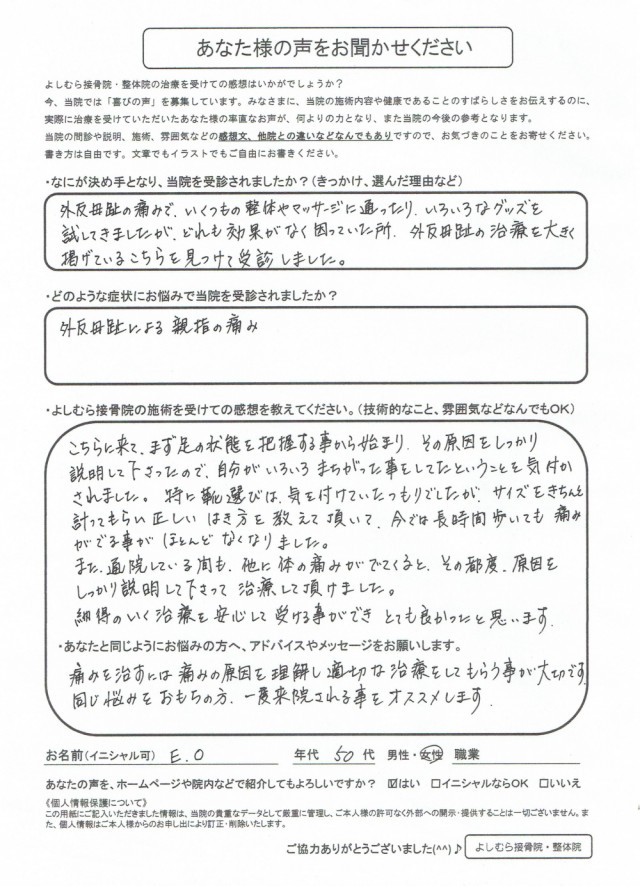 あなた様の声をお聞かせください
よしむら接骨院・整体院の治療を受けての感想はいかがでしょうか?
今、当院では「喜びの声」を募集しています。みなさまに、当院の施術内容や健康であることのすばらしさをお伝えするのに、
実際に治療を受けていただいたあなた様の率直なお声が、何よりの力となり、また当院の今後の参考となります。
当院の問診や説明、施術、雰囲気などの感想文、他院との違いなどなんでもありですので、お気づきのことをお寄せください。
書き方は自由です。文章でもイラストでもご自由にお書きください。
・なにが決め手となり、当院を受診されましたか?(きっかけ、選んだ理由など)
外反母趾の痛みで、いくつもの整体やマッサージに通ったり、いろいろなグッズを
試してきましたが、どれも効果がなく困っていた所、外反母趾の治療を大きく
掲げているこちらを見つけて受診しました。
・どのような症状にお悩みで当院を受診されましたか?
外反母趾による親指の痛み
・よしむら接骨院の施術を受けての感想を教えてください。(技術的なこと、雰囲気などなんでもOK)
こちらに来て、まず足の状態を把握する事から始まり、その原因をしっかり
説明して下さったので、自分がいろいろまちがった事をしてたということを気付か
されました。特に靴選びは、気を付けていたつもりでしたが、サイズをきちんと
計ってもらい正しいはき方を教えて頂いて、今では長時間歩いても痛み
がでる事がほとんどなくなりました。
また、通院している間も、他に体の痛みがでてくると、その都度、原因を
しっかり説明して下さって治療して頂けました。
納得のいく治療を安心して受ける事ができとても良かったと思います。
・あなたと同じようにお悩みの方へ、アドバイスやメッセージをお願いします。
痛みを治すには痛みの原因を理解し適切な治療をしてもらう事が大切です
同じ悩みをおもちの方、一度来院される事をオススメします。
お名前(イニシャル可) E.O 年代 50代 男性・女性 職業
あなたの声を、ホームページや院内などで紹介してもよろしいですか? ☑はい □イニシャルならOK □いいえ
《個人情報保護について》
この用紙にご記入いただきました情報は、当院の貴重なデータとして厳重に管理し、ご本人様の許可なく外部への開示・提供することは一切ございません。ま
た、個人情報はご本人様からのお申し出により訂正・削除いたします。
ご協力ありがとうございました(^^)♪ よしむら接骨院・整体院